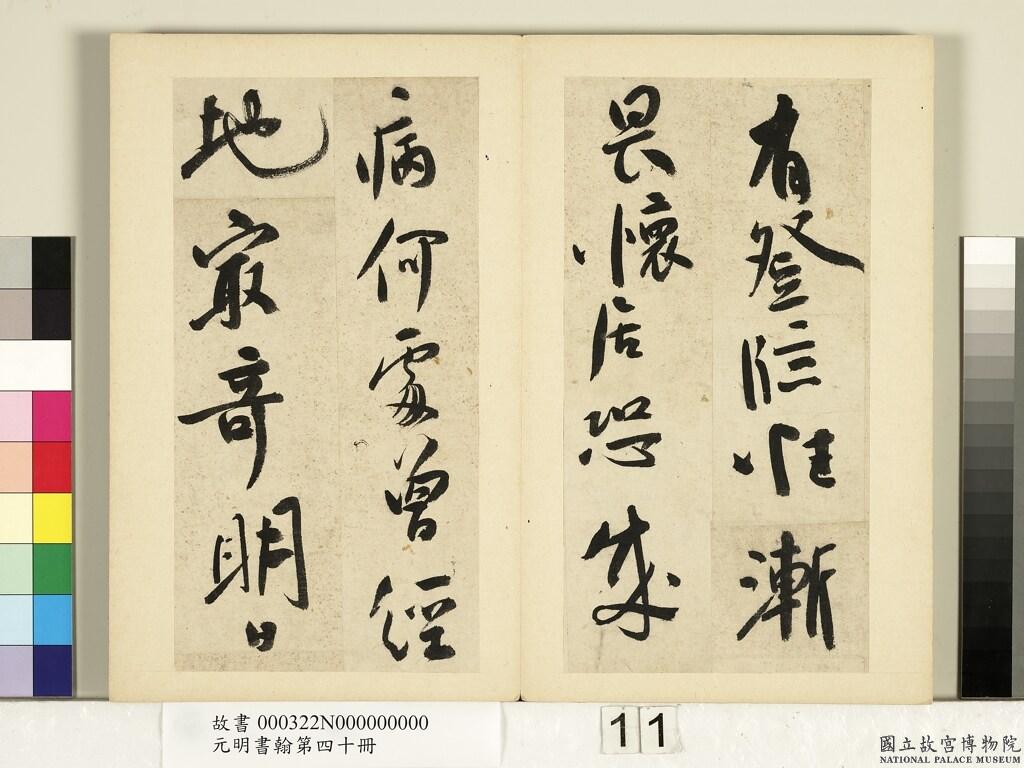 有登臨惟漸
畏懷居恐成
病何處曾經
地最奇明日
故書 000322N000000000
元明書翰第四十冊
11
國立故宮博物院
NATIONAL PALACE MUSEUM